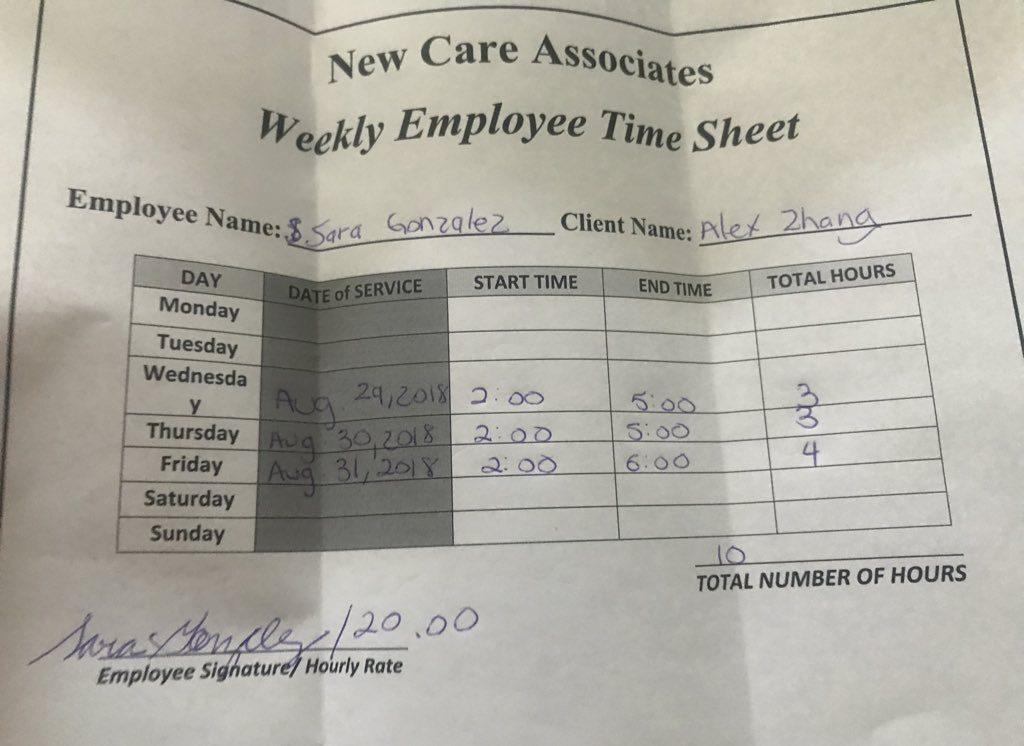 New Care Associates
Weekly Employee Time Sheet
Employee Name: S. Sara Gonzalez Client Name: Alex Zhang
DAY DATE of SERVICE START TIME END TIME TOTAL HOURS
Monday
Tuesday
Wednesda
y Aug 29,2018 2:00 5:00 3
Thursday Aug 30,2018 2:00 5:00 3
Friday Aug 31,2018 2:00 6:00 4
Saturday
Sunday
10
TOTAL NUMBER OF HOURS
Sara Gonzalez /20.00
Employee Signature/ Hourly Rate